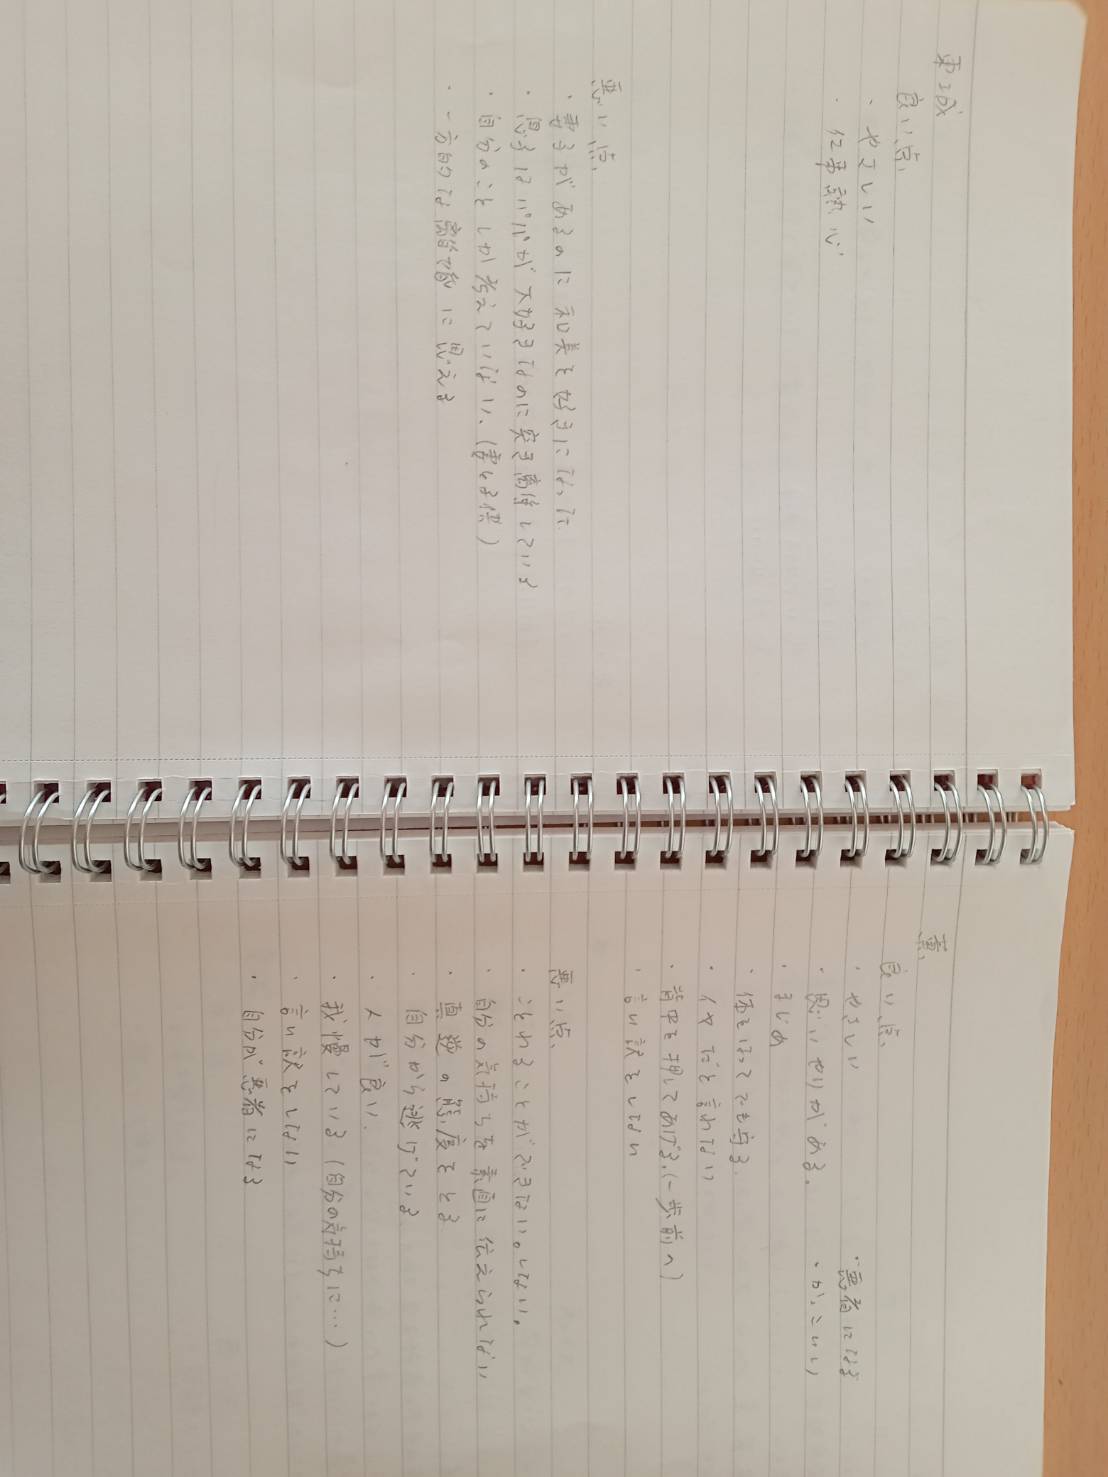 良い点
・やさしい
・仕事熱心
悪い点
・妻子があるのに和美を好きになった
・息子はパパが大好きなのに実子離縁している
・自分のことしか考えていない、(妻も子供)
・一方的な 態に思える
薫
良い点
・やさしい
・思いやりがある。
・まじめ
・体をはってでも守る
・イヤだと言わない
・背中を押してあげる(一歩前へ)
・言い訳をしない
・悪者になる
・かっこいい
悪い点
・ことわることができない。しない。
・自分の気持ちを素直に伝えられない
・真逆の態度をとる
・自分から逃げている
・人が良い
・我慢している(自分の気持ちに…)
・言い訳をしない
・自分が悪者になる